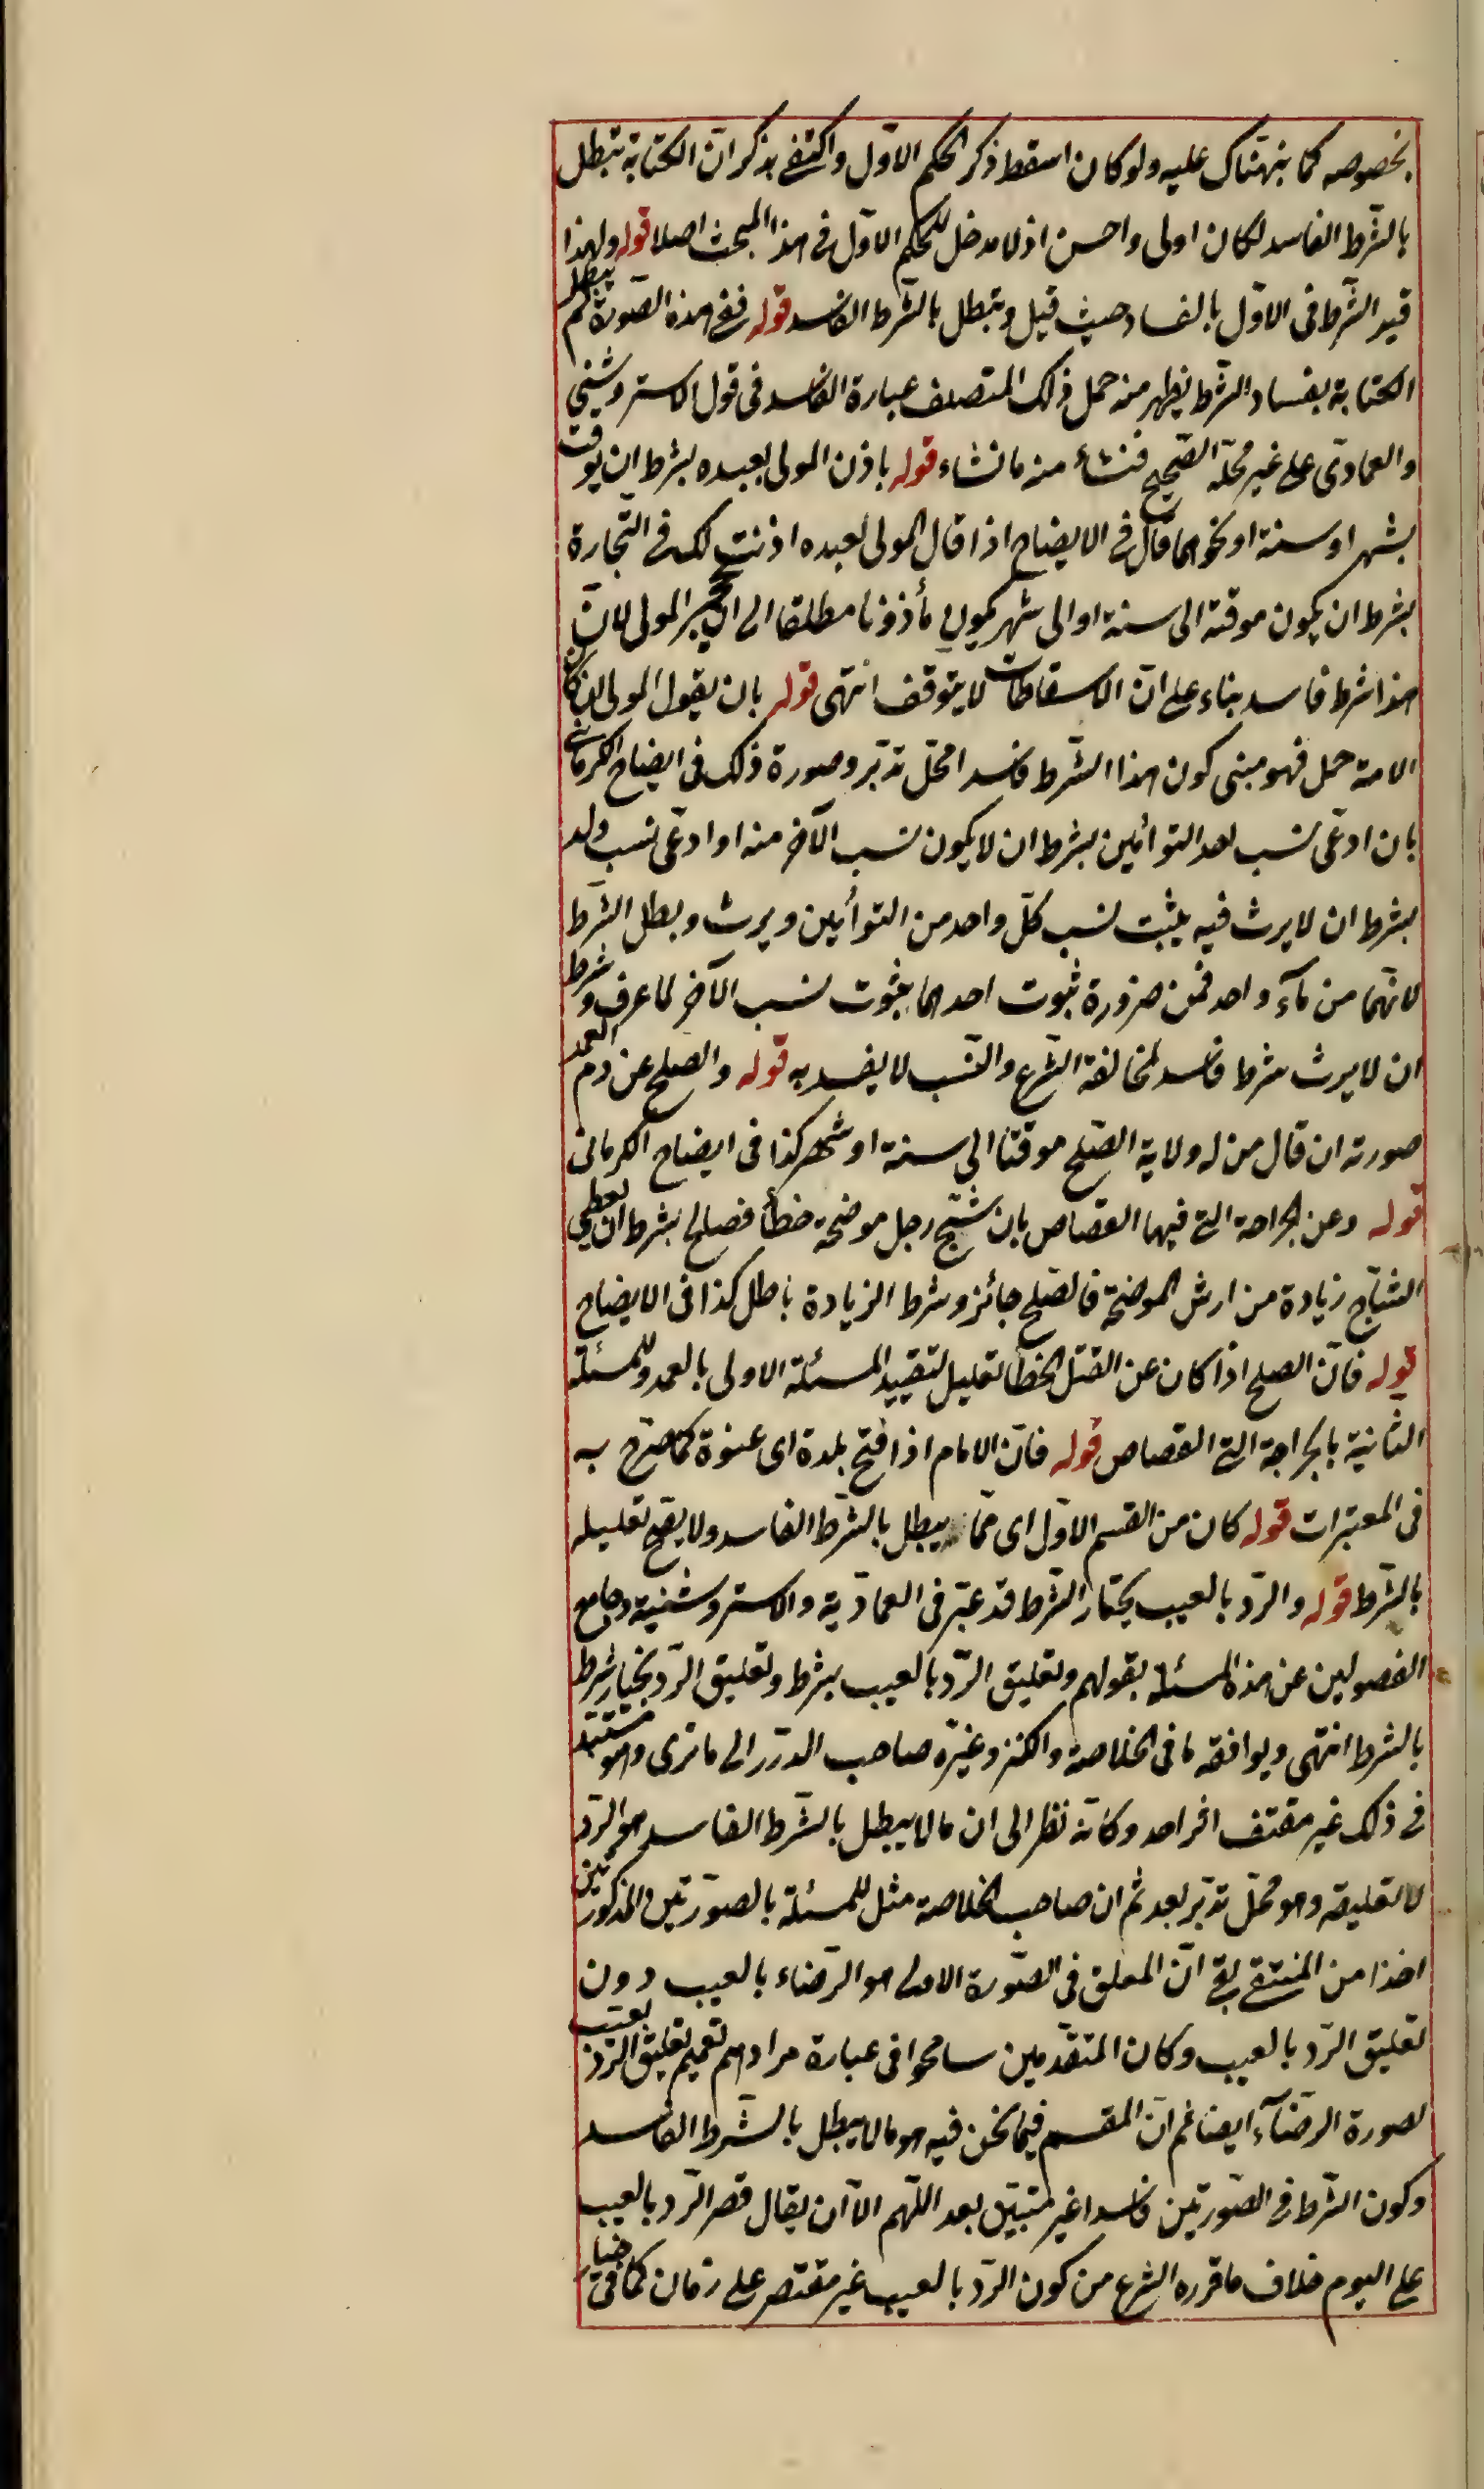 بخصوصه كما نبهناك عليه ولو كان اسقط ذكر الحكم الاول واكتفى بذكر ان الكتابة تبطل
بالشرط الفاسد لكان اولى واحسن اذ لا مدخل للحكم الاول فى هذا المبحث اصلا قوله ولهذا
قيد الشرط فى الاول بالفساد حيث قيل وتبطل بالشرط الفاسد قوله ففى هذه الصورة لم يبطل
الكتابة بفساد الشرط يظهر منه حمل ذلك المتصلف عبارة الفاسد فى قول الاستروشنى
والعمادى على غير محله الصحيح فنشأ منه ما نشاء قوله باذن المولى لعبده بشرط ان يوقت
بشهر او سنة او نحوهما قال فى الايضاح اذا قال المولى لعبده اذنت لك فى التجارة
بشرط ان يكون موقتة الى سنة او الى شهر يكون مأذونا مطلقا الى ان يحجر المولى لان
هذا شرط فاسد بناء على ان الاسقاطات لا يتوقف انتهى قوله بان يقول المولى ان كان
الامة حمل فهو مبنى كون هذا الشرط فاسدا محل تدبر وصورة ذلك فى ايضاح الكرمانى
بان ادعى نسب احد التوأمين بشرط ان لا يكون نسب الآخر منه او ادعى نسب ولد
بشرط ان لا يرث فيه يثبت نسب كل واحد من التوأمين ويرث وبطل الشرط
لانهما من مآء واحد فمن ضرورة ثبوت احدهما ثبوت نسب الآخر لما عرف وشرط
ان لا يرث شرط فاسد لمخالفة الشرع والنسب لا يفسد به قوله والصلح عن دم العمد
صورته ان قال من له ولاية الصلح موقتا الى سنة او شهر كذا فى ايضاح الكرمانى
قوله وعن الجراحة التى فيها القصاص بان شج رجل موضحة خطأ فصالح بشرط ان يعطى
الشاج زيادة من ارش الموضحة فالصلح جائز وشرط الزيادة باطل كذا فى الايضاح
قوله فان الصلح اذا كان عن القتل الخطأ تعليل لتقييد المسئلة الاولى بالعمد وللمسئلة
الثانية بالجراحة التى القصاص قوله فان الامام اذا فتح بلدة اى عنوة كما صرح به
فى المعتبرات قوله كان من القسم الاول اى مما يبطل بالشرط الفاسد ولا يصح تعليله
بالشرط قوله والرد بالعيب بخيار الشرط قد عبر فى العمادية والاستروشنية وجامع
الفصولين عن هذه المسئلة بقولهم وتعليق الرد بالعيب بشرط وتعليق الرد بخيار شرط
بالشرط انتهى ويوافقه ما فى الخلاصة والكنز وغيره صاحب الدرر الى ما ترى وهو مستبد
فى ذلك غير مقتف اثر احد وكانه نظر الى ان ما لا يبطل بالشرط الفاسد هو الرد
لا تعليقه وهو محل تدبر بعد ثم ان صاحب الخلاصة مثل للمسئلة بالصورتين المذكورتين
اخذا من المنتقى بقى ان المعلق فى الصورة الاولى هو الرضاء بالعيب دون
تعليق الرد بالعيب وكان المتقدمين سامحوا فى عبارة مرادهم تعميم تعليق الرد بعيب
لصورة الرضآء ايضا ثم ان المقسم فيما نحن فيه هو ما لا يبطل بالشرط الفاسد
وكون الشرط فى الصورتين فاسدا غير متبين بعد اللهم الا ان يقال قصر الرد بالعيب
على اليوم خلاف ما قرره الشرع من كون الرد بالعيب غير مقتصر على زمان كما فى خيار